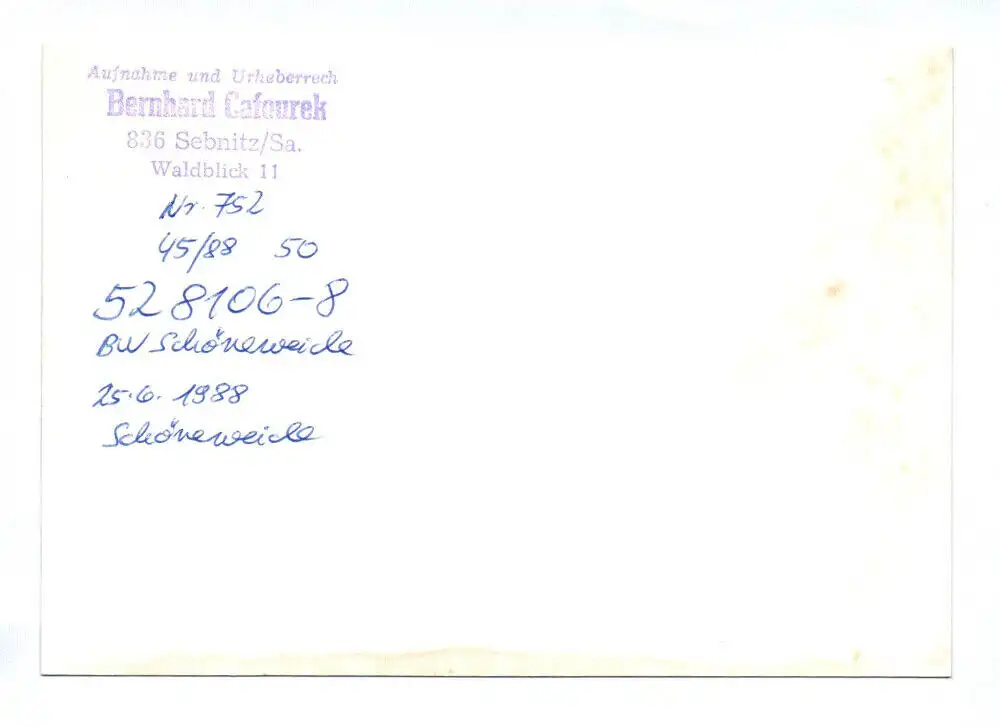 Aufnahme und Urheberrech
Bernhard Cafourek
836 Sebnitz/Sa.
Waldblick 11
Nr. 752
45/88 50
52 8106-8
BW Schöneweide
25.6. 1988
Schöneweide